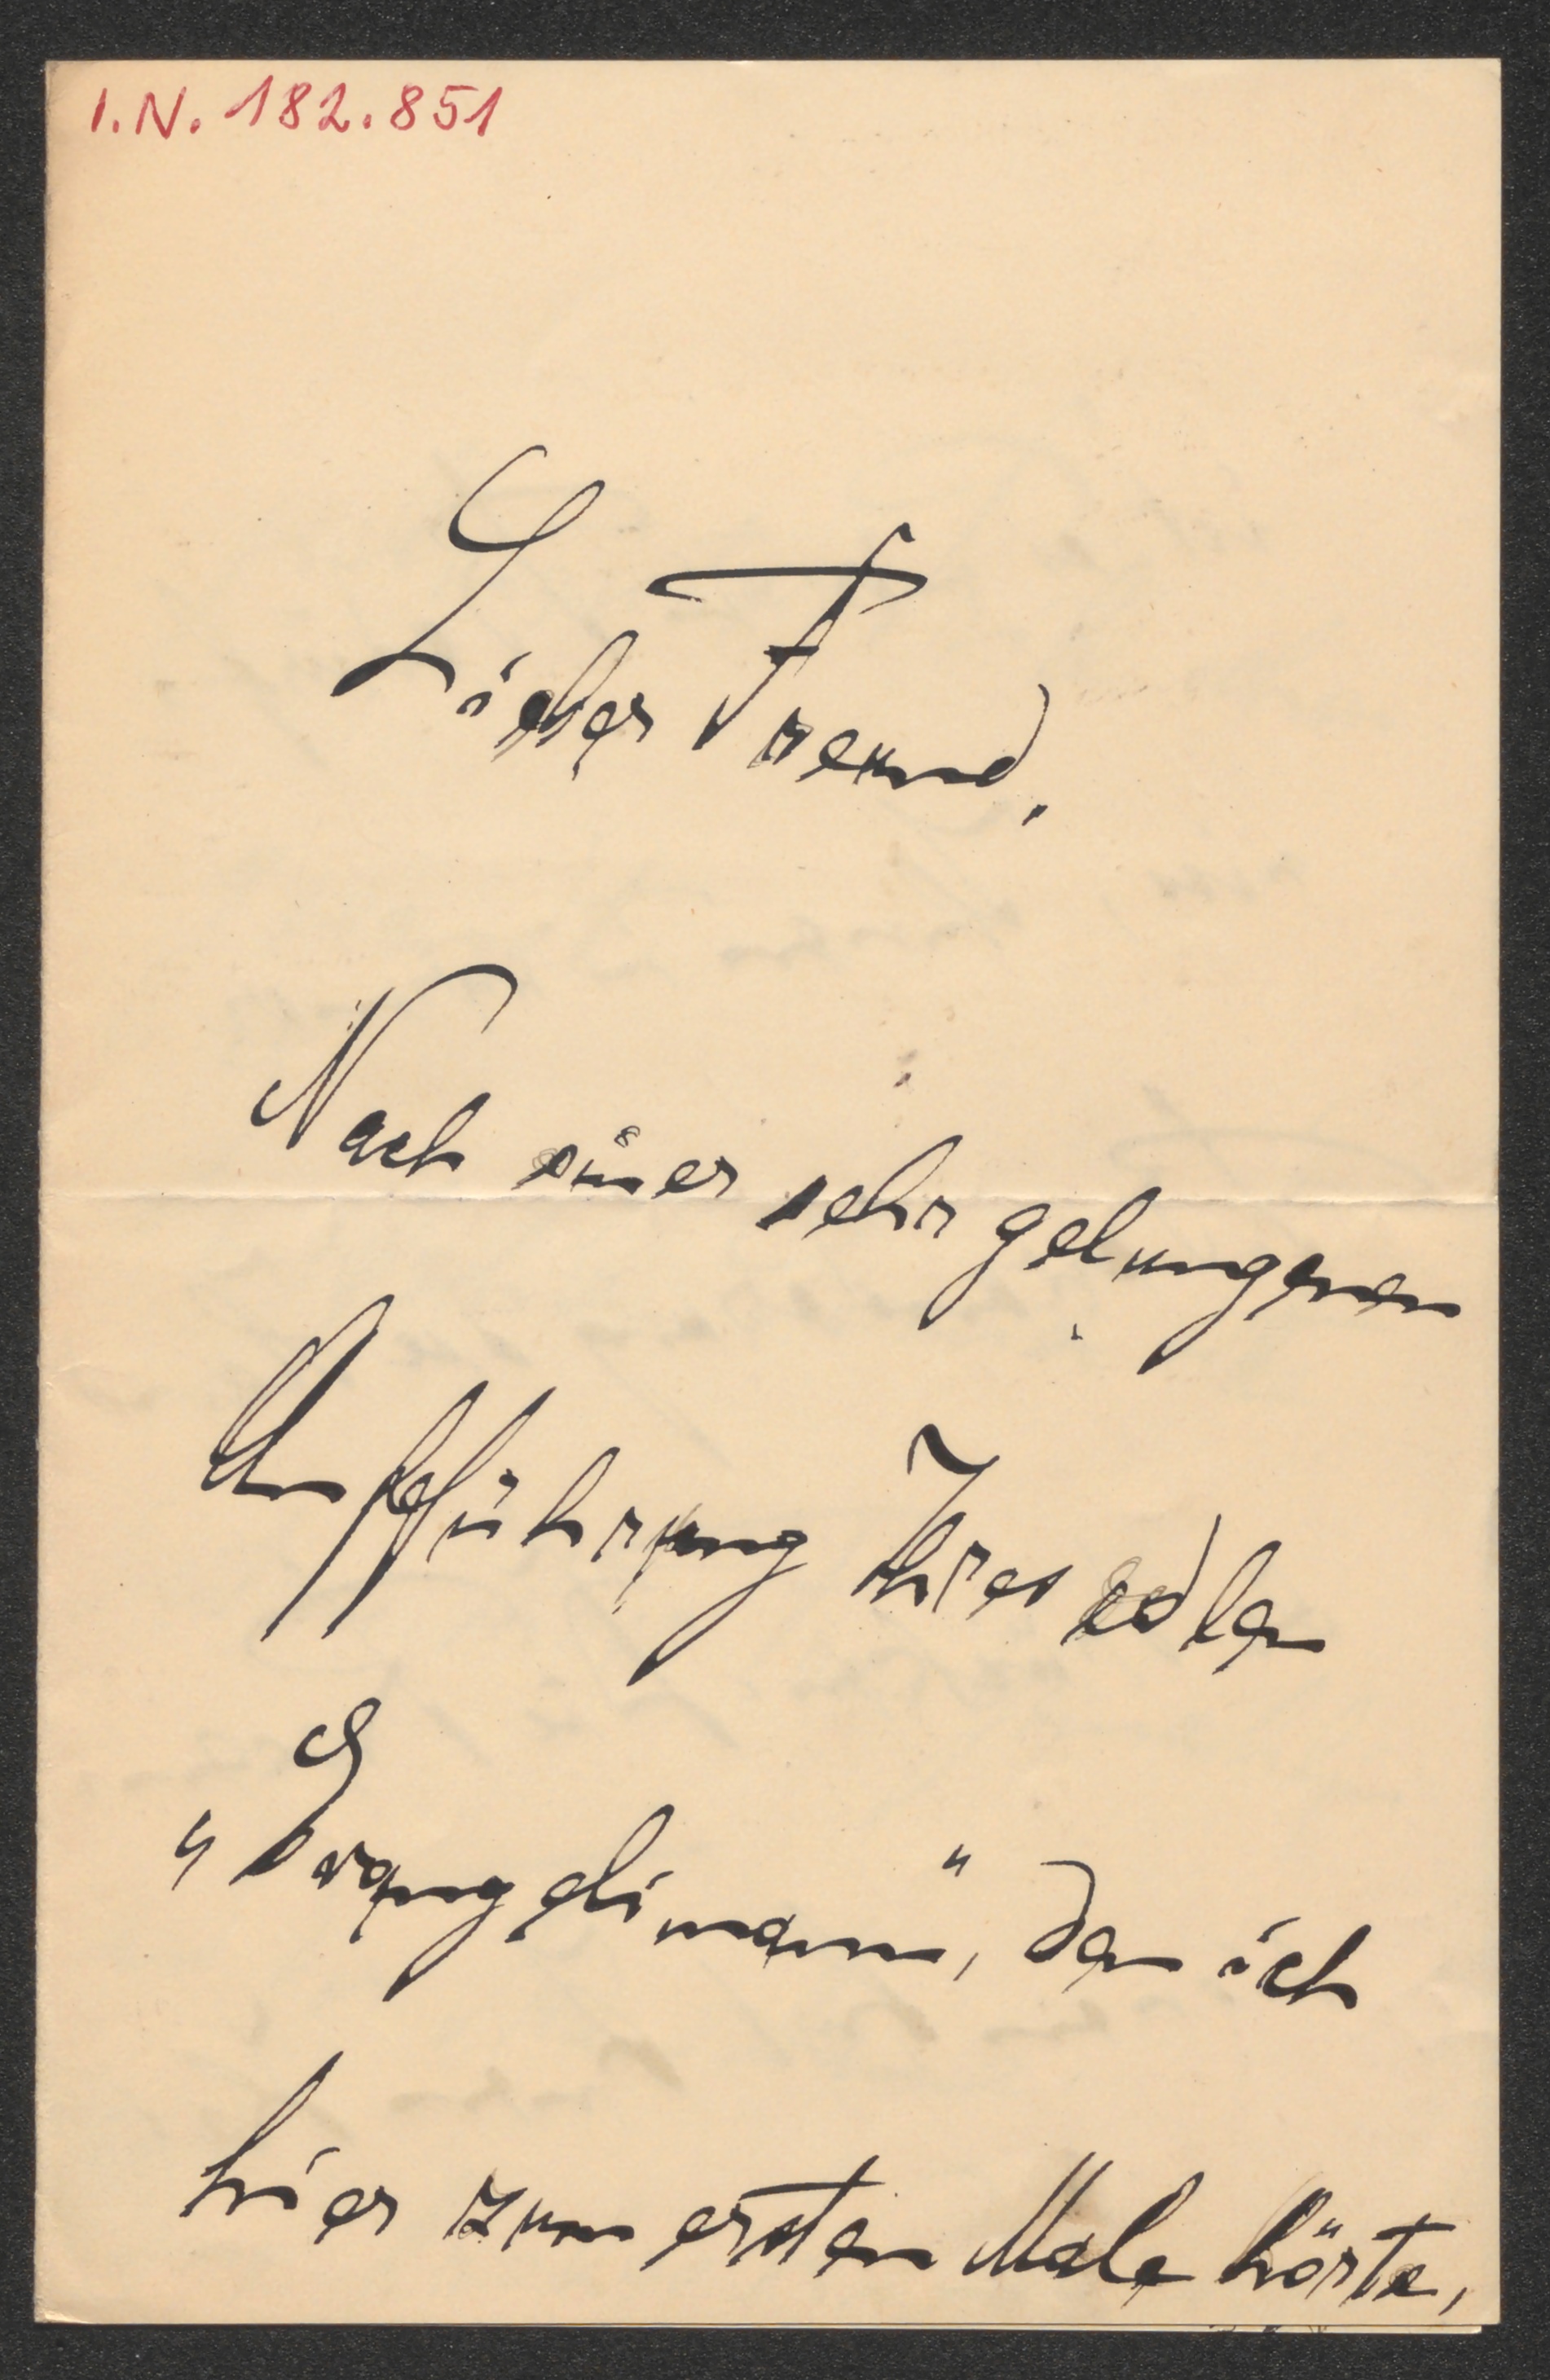 I.N. 182.851
Lieber Freund,
Nach einer sehr gelungenen
Aufführung Ihres edlen
„Evangelimann", den ich
hier zum ersten Male hörte,